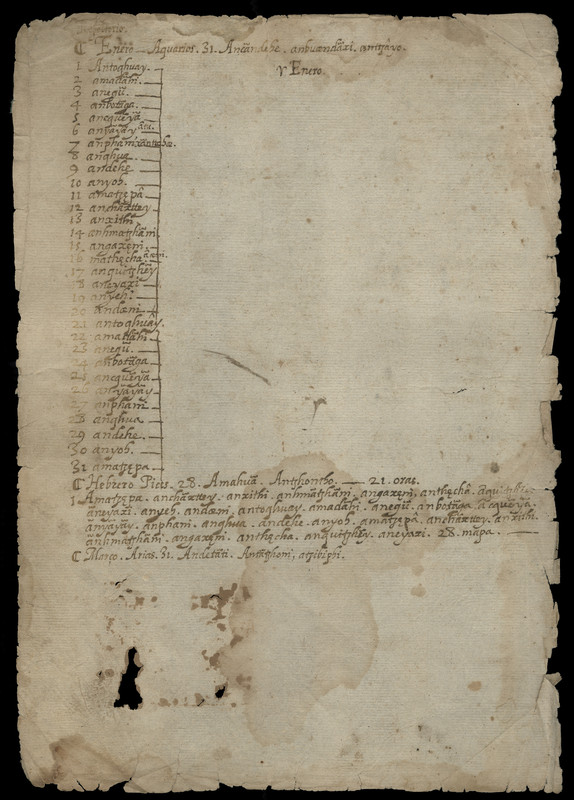 ℃ Enero — Aquarios. 31. Ancãndehe. anbuœndãxi. antzãyo.
γ Enero.
1 Antoghuay.
2 amadãhi.
3 anegũ.
4 anbotãga.
5 ancque̱ỹa
6 anyãyãy
7 anphani
8 anghua
9 andehe
10 anyoh.
11 amatze̱pâ
12 anchãxttey
13 anxithi
14 anhmatghãni
15 angaxe̱ni
16 mathe̱cha
17 anquitghe̱y
18 aneyaxi
19 anyeh
20 andœni
21 antoghuay.
22 amadãhi
23 anegũ.
24 anbotãga
25 ancque̱ỹa
26 anyãyãy
27 anphani
28 anghua
29 andehe
30 anyoh.
31 amatze̱pa
℃ Hebrero Picis. 28. Amahuã. Antghontho. — 21. oras.
1 Amatze̱pa. anchãxttey. anxithi. anhmatghãni. angaxe̱ni, anthe̱châ.
aneyaxi. anyeh. andœni. antoghuay. amadahi. anegũ. anbotãga. acque̱ỹa.
anyãyãy. anphani. anghua. andehe. anyoh. amatze̱pâ. anchãxttey. anxithi.
anhmatghãni. angaxe̱ni. anthe̱cha. anquitghe̱y. aneyaxi. 28. mapa.
℃ Março. Arias. 31. Andetãti. Antãghoni, atzibiphi.